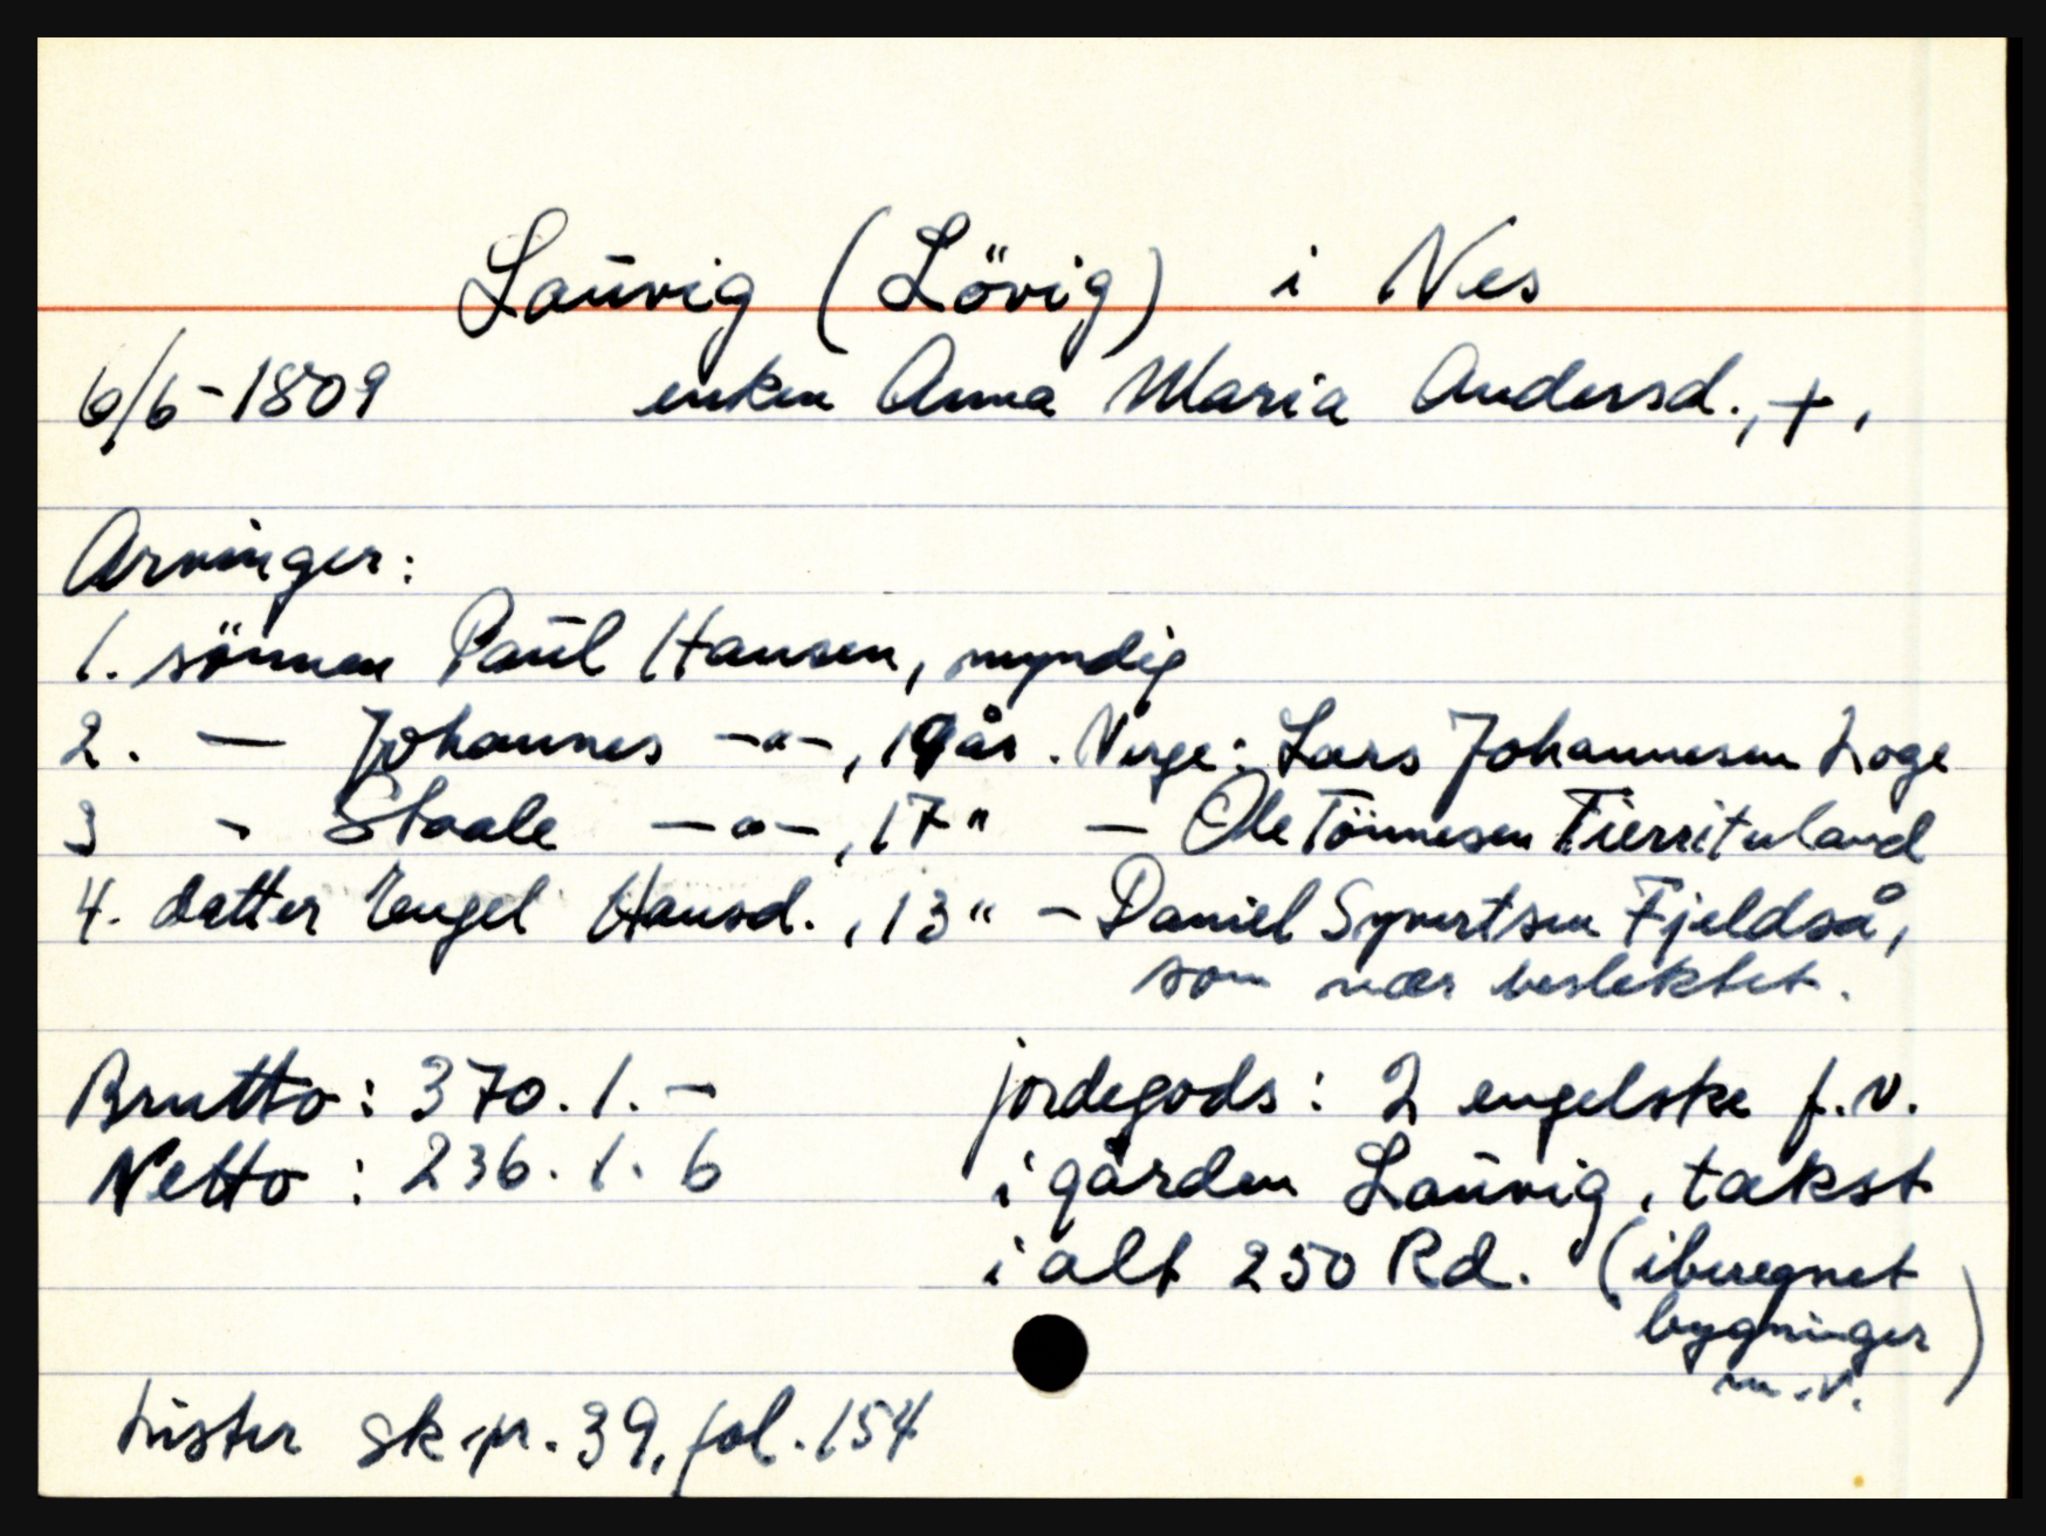 Laūvig (Lövig) i Nes
6/6-1809 enken Anna Maria Andersd., +,
Arvinger:
1. sönnen Paūl Hansen, myndig
2. — Johannes —"—, 19 år. Verge: Lars Johannesen Loge
3 - Staale —"—, 17" — Ole Tönnesen
4. datter Engel Hansd., 13" - Daniel Syvertsen Fjeldså,
som nær beslektet.
Brutto: 370. 1. - jordegods: 2 engelske f. v.
Netto: 236. 1. 6 i gården Laūvig, takst
i alt 250 Rd. (iberegnet
bygninger
m.v.)
Lister sk.pr. 39, fol. 154